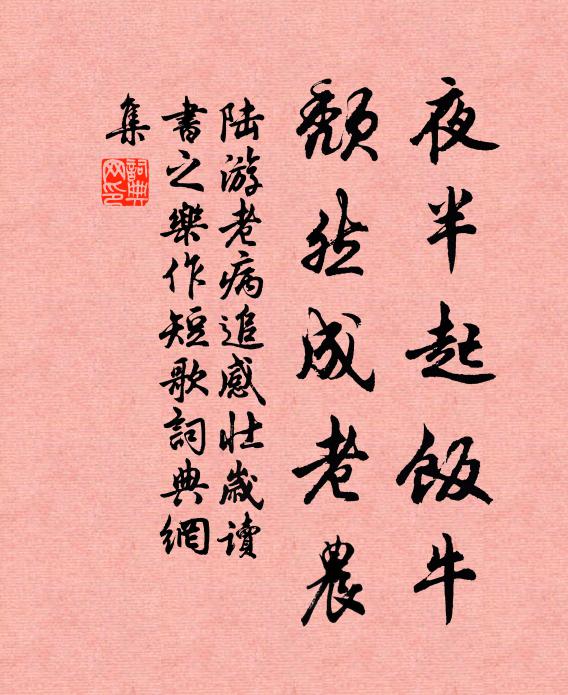 夜半起飯牛
頽然成老農
陆游老病追感壯歲讀
書之樂作短歌詞典網
集
詞典網印